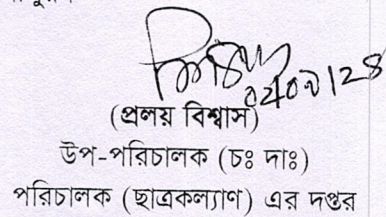 (প্রলয় বিশ্বাস)
উপ-পরিচালক (চঃ দাঃ)
পরিচালক (ছাত্রকল্যাণ) এর দপ্তর